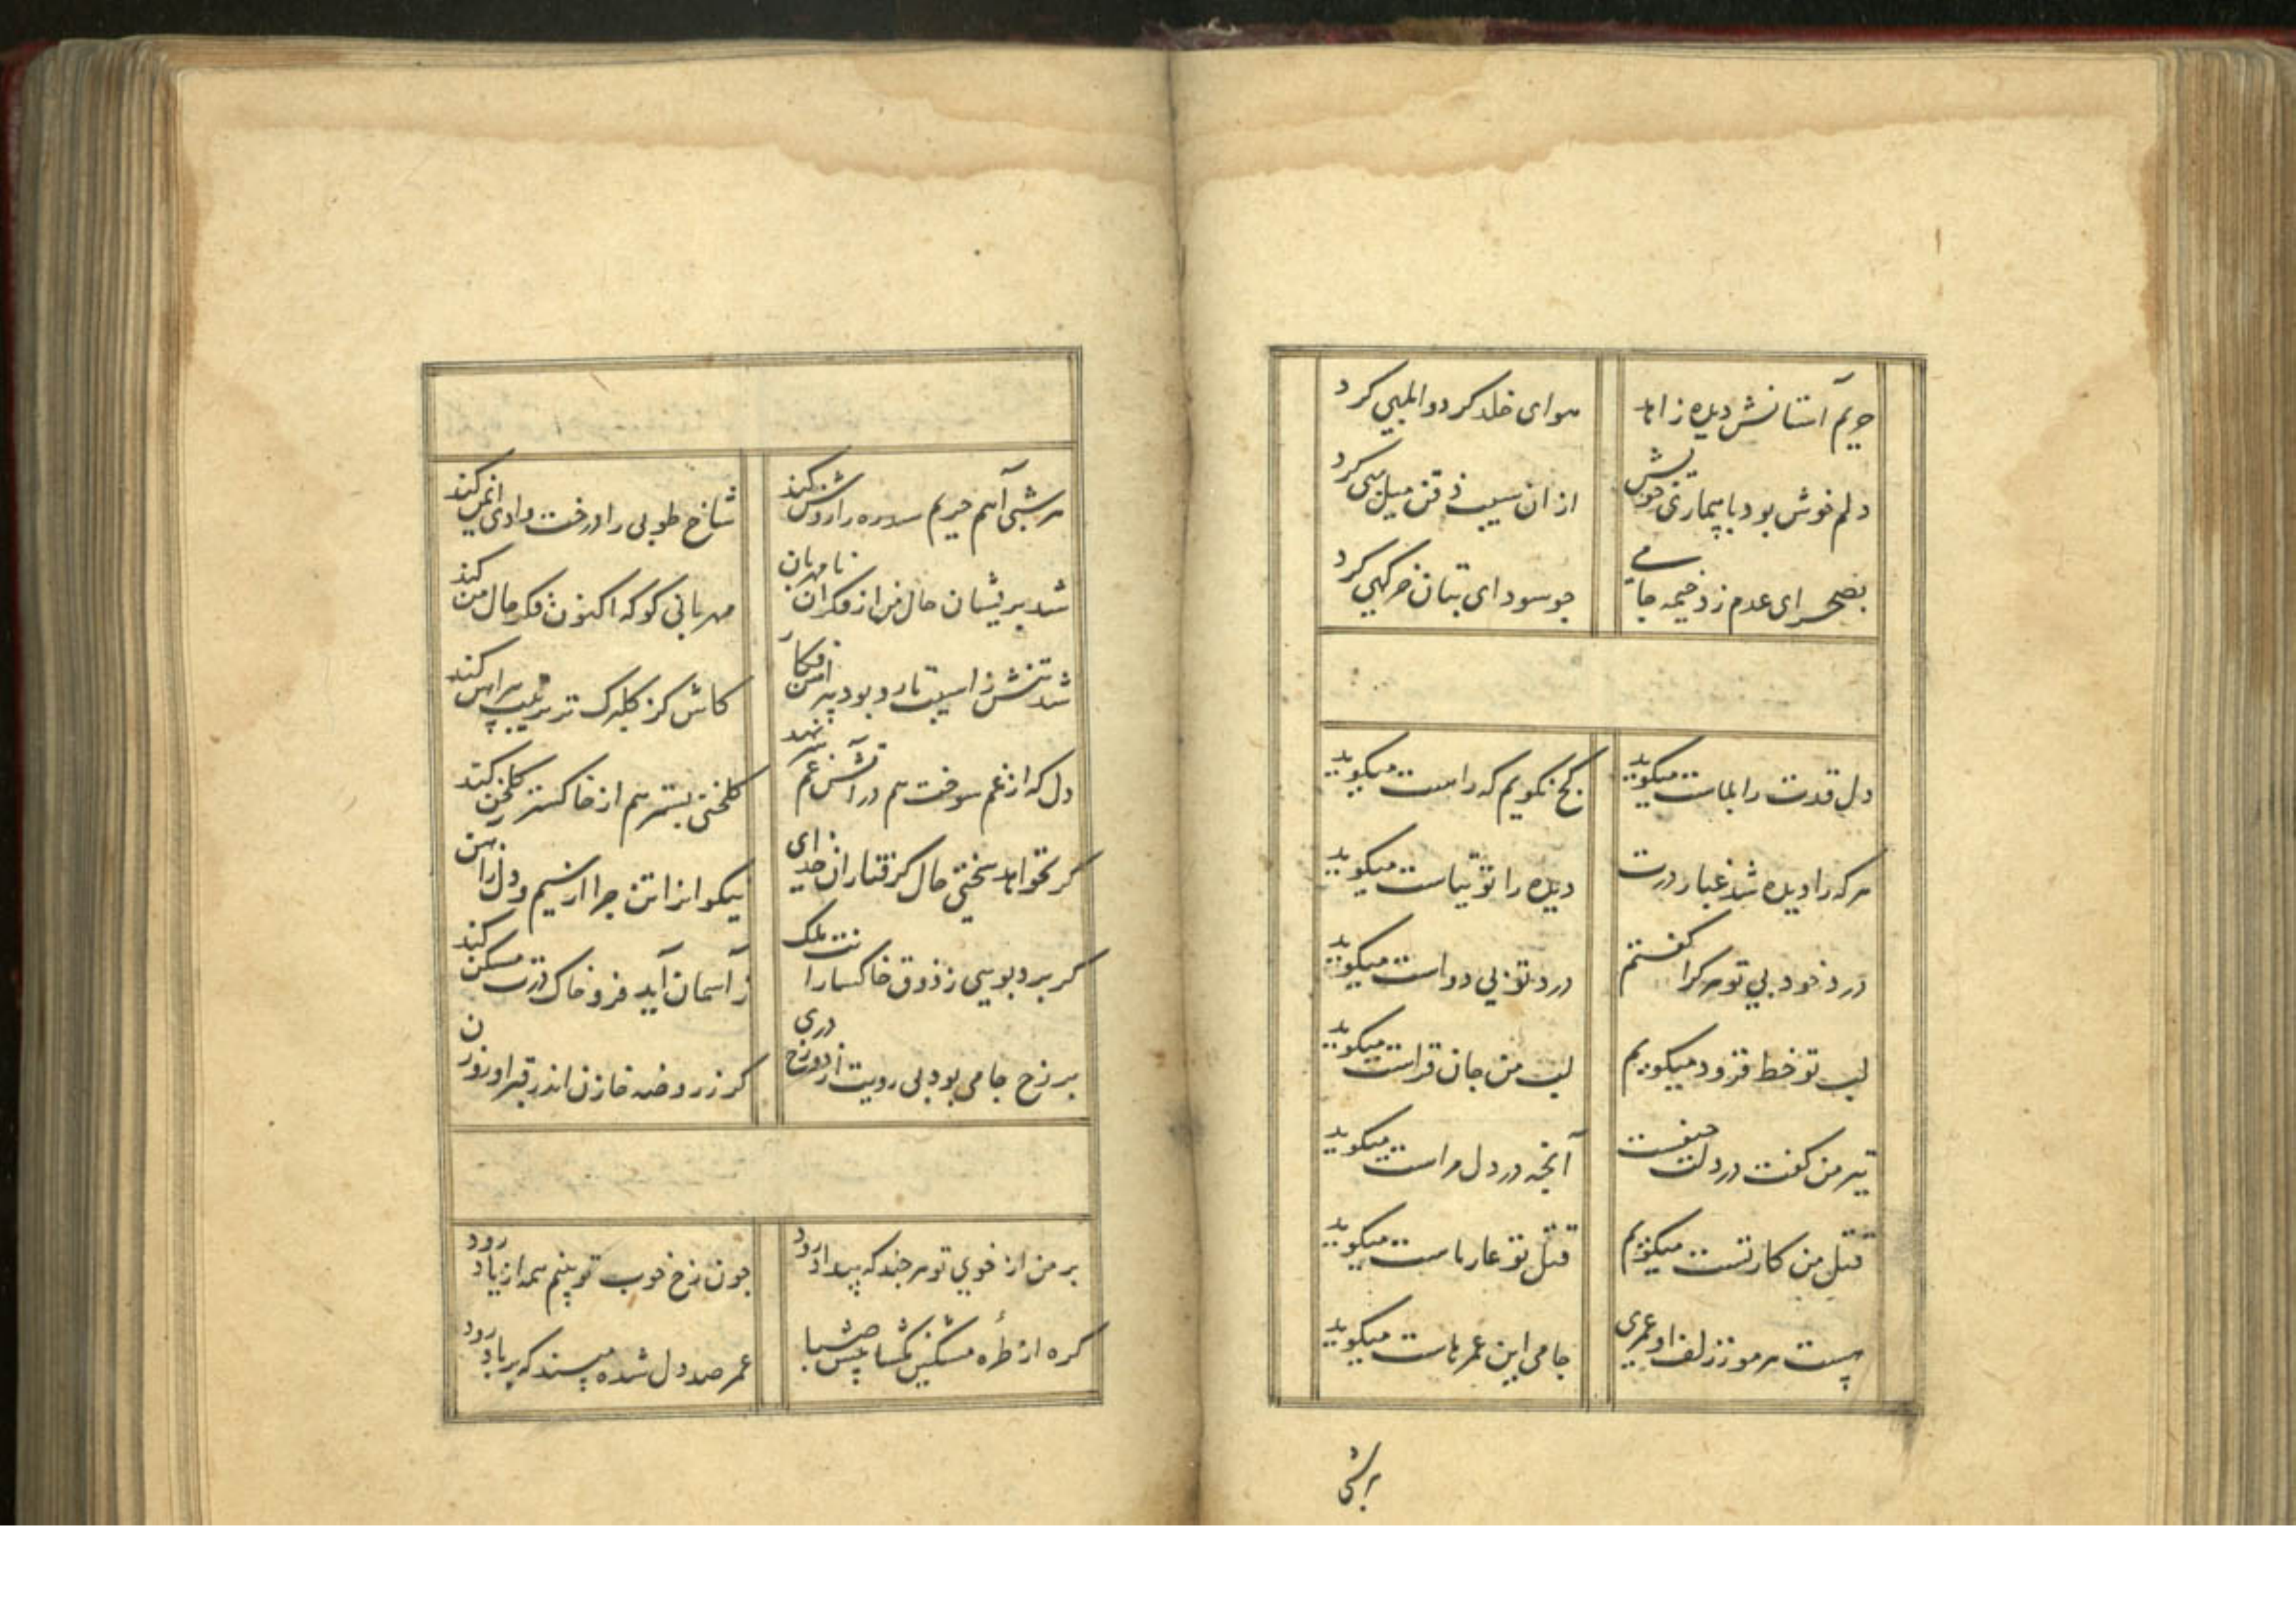 حریم آستانش دیده زاهد
هوای خلد کرد و ابلهی کرد
دلم خوش بود با بیماری خویش
از ان سیب ذقن میل بهی کرد
بصحرای عدم زد خیمه جامی
جو سودای بتان خرکهی کرد
دل قدت را بلاست میکوید
کج نکویم که راست میکوید
هر که را دیده شد غبار درت
دیده را توتیاست میکوید
درد خود بی تو هر کرا کفتم
درد تو بی دواست میکوید
لب تو خط فزود میکویم
لب من جان فزاست میکوید
تیر من کفت در دلت جیست
آنجه در دل مراست میکوید
قتل من کار تست میکویم
قتل تو عار ماست میکوید
هست هر مو ز زلف او عمری
جامی این عمرهاست میکوید
هر شبی
هر شبی آهم حریم سدره را روشن کند
شاخ طوبی را درخت وادی ایمن کند
شد پریشان حال من از فکر ان نامهربان
مهربانی کو که اکنون فکر حال من کند
شد تنش ز اسیب تار و بود پیراهن فکار
کاش کز کلبرک تر ترتیب پیراهن کند
دل که از غم سوخت هم در آتش غم سر نهد
کلخنی بستر هم از خاکستر کلخن کند
کر نخواهد سختی حال کرفتاران خدای
نیکوانرا تن جرا از سیم و دل ز آهن کند
کر برد بویی ز ذوق خاکساران ملک
ز آسمان آید فرو خاک درت مسکن کند
بر رخ جامی بود بی رویت از دوزخ دری
کر ز روضه خازن اندر قبر او روزن
بر من از خوی تو هر جند که بیداد رود
جون رخ خوب تو بینم همه از یاد رود
کره از طره مشکین مکشا پیش صبا
عمر صد دل شده مپسند که بر باد رود